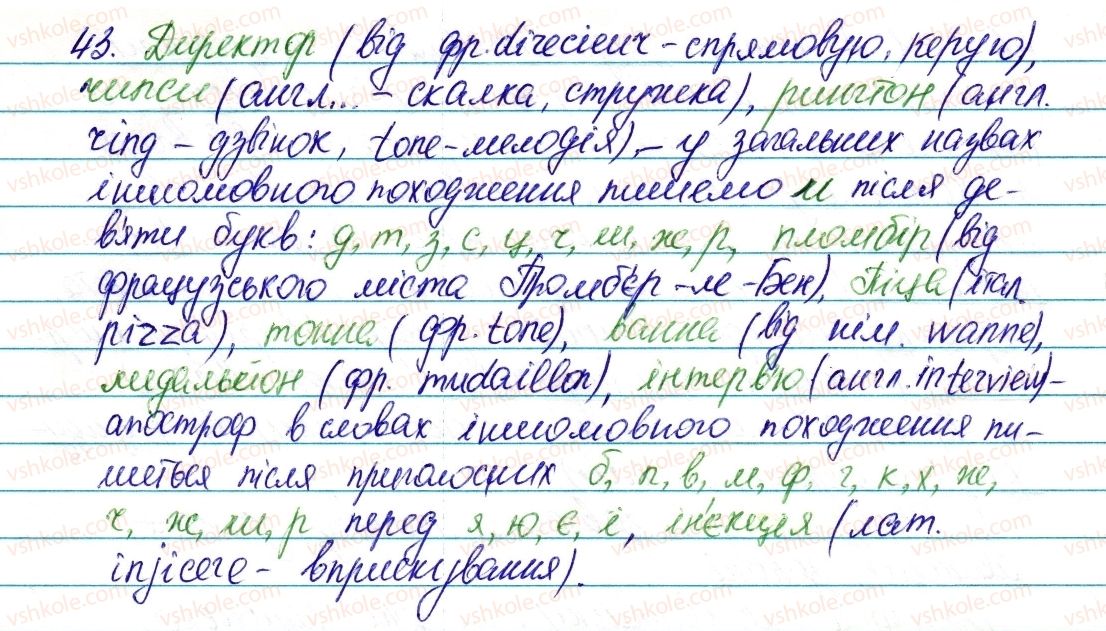 43. Директор (від фр. direcieur - спрямовую, керую),
чипси (англ... - скалка, стружка), рингтон (англ.
ring - дзвінок, tone - мелодія), - у загальних назвах
іншомовного походження пишемо и після де-
в'яти букв: д, т, з, с, ц, ч, ш, ж, р, пломбір (від
французського міста Пломб'єр-ле-Бен), піца (італ.
pizza), тонна (фр. tone), ванна (від нім. wanne),
медальйон (фр. mudaillon), інтерв'ю (англ. interview) -
апостроф в словах іншомовного походження пи-
шеться після приголосних б, п, в, м, ф, г, к, х, ж,
ч, ж, ш, р перед я, ю, є, ї, ін'єкція (лат.
injicere - впорскування).